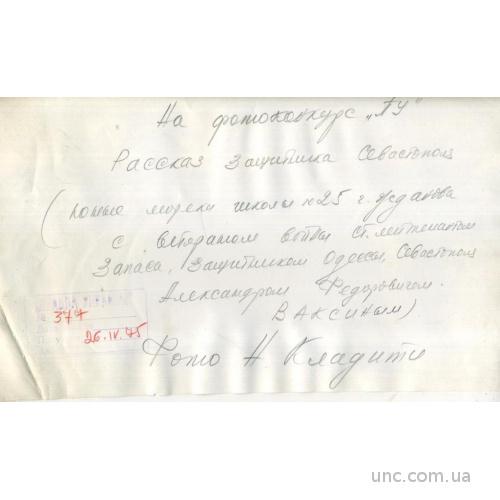 На фотоконкурс „ПУ"
Рассказ защитника Севастополя
(юные моряки школы №25 г. Жданова
с ветераном войны ст. лейтенантом
запаса, защитником Одессы, Севастополя
Александром Федоровичем
ВАКСИНЫМ)
377
26.IV.75
Фото Н. Кладити
unc.com.ua